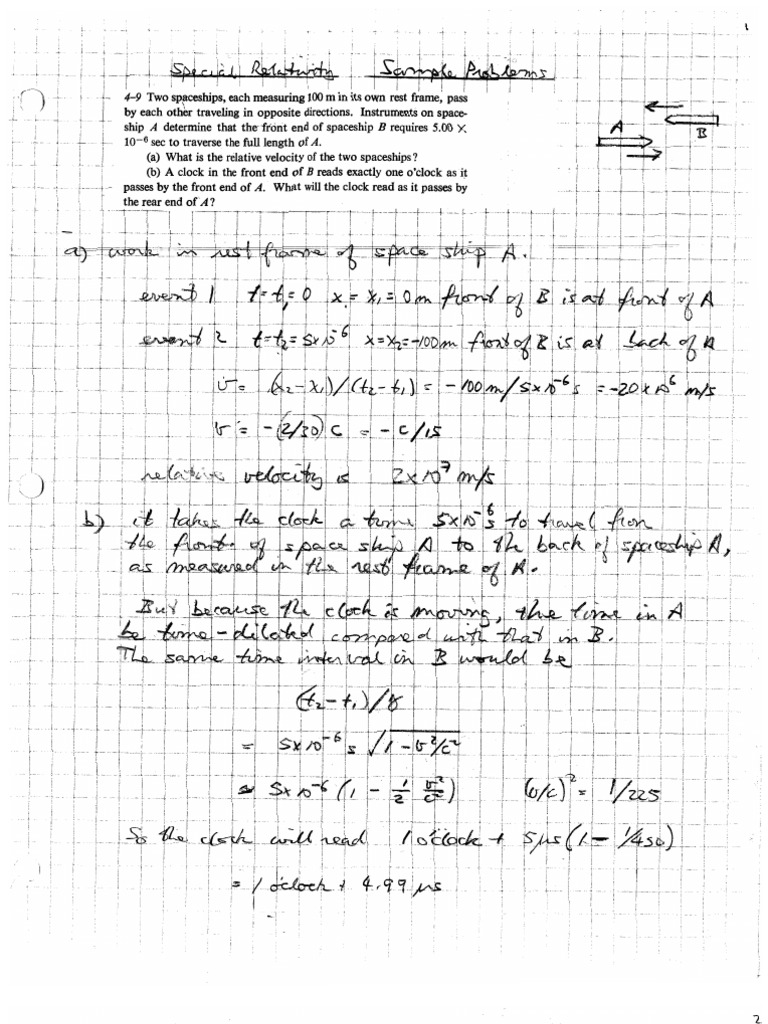 1
Special Relativity Sample Problems
4–9 Two spaceships, each measuring 100 m in its own rest frame, pass
by each other traveling in opposite directions. Instruments on space-
ship A determine that the front end of spaceship B requires 5.00 ×
10⁻⁶ sec to traverse the full length of A.
(a) What is the relative velocity of the two spaceships?
(b) A clock in the front end of B reads exactly one o'clock as it
passes by the front end of A. What will the clock read as it passes by
the rear end of A?
A
B
a) work in rest frame of space ship A.
event 1 t=t₁=0 x=x₁=0m front of B is at front of A
event 2 t=t₂=5x10⁻⁶ x=x₂=-100m front of B is at back of A
v = (x₂-x₁)/(t₂-t₁) = -100m/5x10⁻⁶s = -20x10⁶ m/s
v = -(2/30)c = -c/15
relative velocity is 2x10⁷ m/s
b) it takes the clock a time 5x10⁻⁶s to travel from
the front of space ship A to the back of spaceship A,
as measured in the rest frame of A.
But because the clock is moving, the time in A
be time-dilated compared with that in B.
The same time interval in B would be
(t₂-t₁)/γ
= 5x10⁻⁶ s √1-v²/c²
≈ 5x10⁻⁶ (1 - 1/2 v²/c²) (v/c)² = 1/225
So the clock will read 1 o'clock + 5μs(1-1/450)
= 1 o'clock + 4.99 μs
2